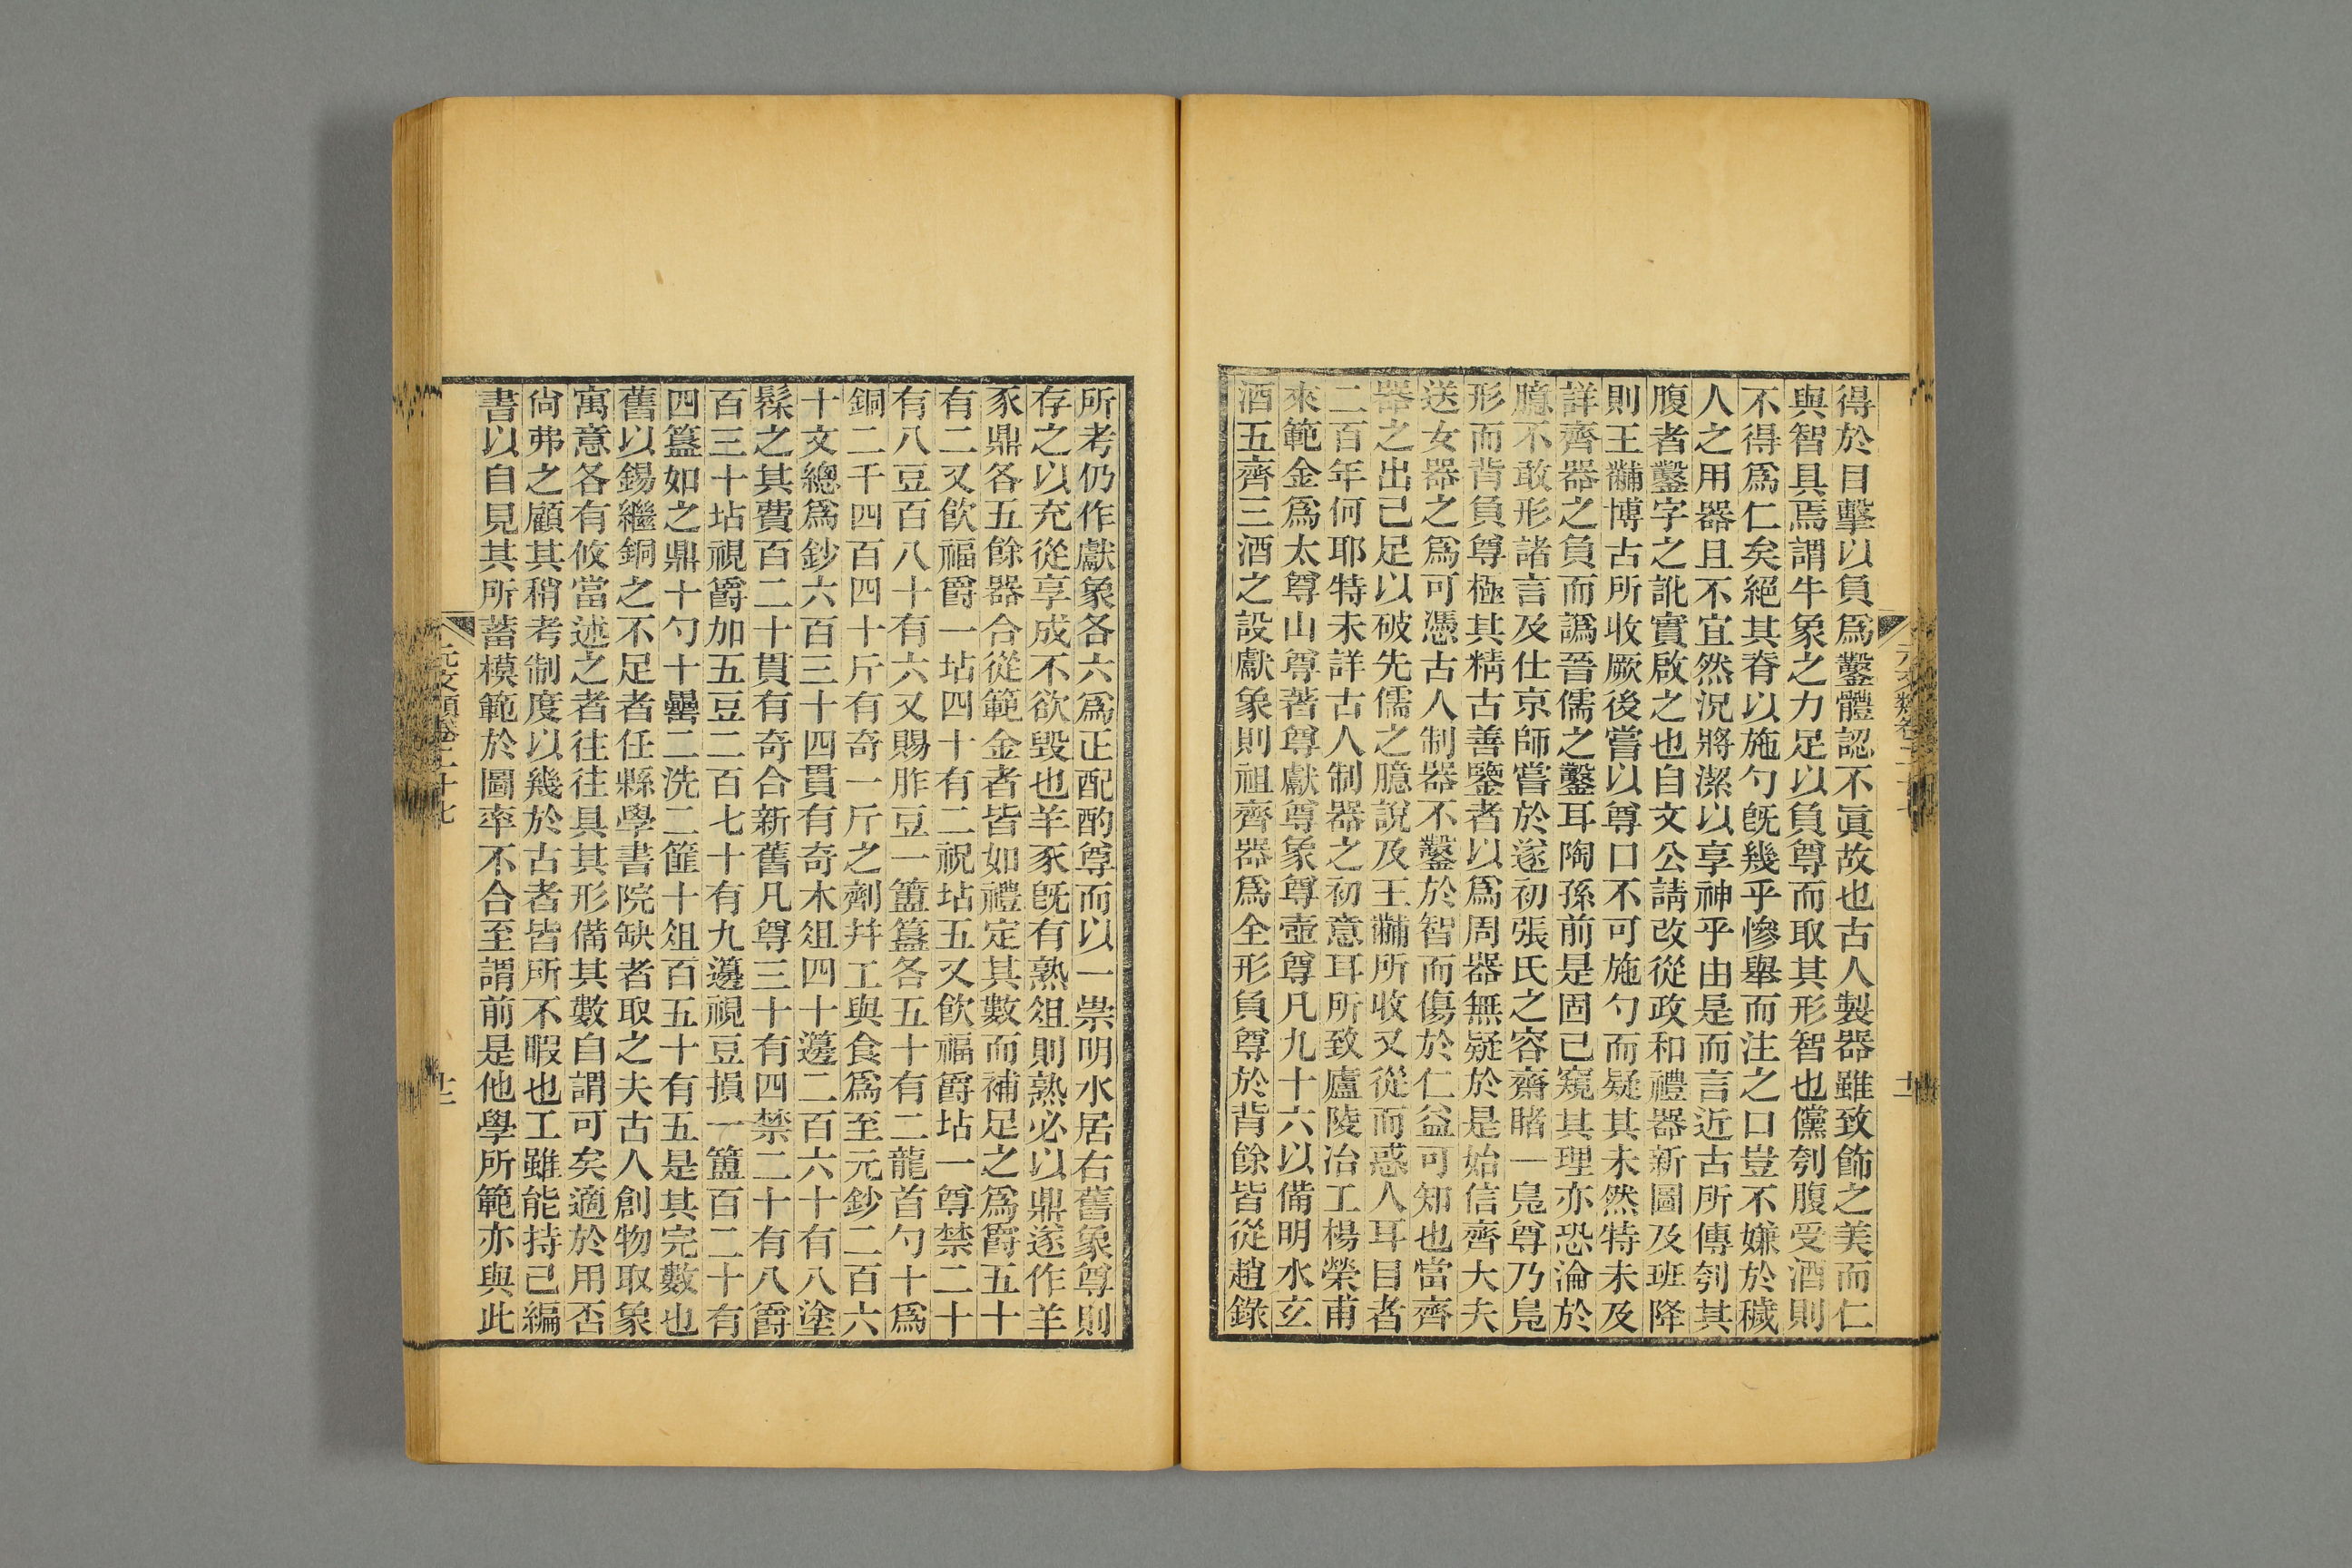 得於目擊以負爲鑿體認不眞故也古人製器雖致飾之美而仁
與智具焉謂牛象之力足以負尊而取其形智也儻刳腹受酒則
不得爲仁矣絕其脊以施勺旣幾乎慘舉而注之口豈不嫌於穢
人之用器且不宜然況將潔以享神乎由是而言近古所傳刳其
腹者鑿字之訛實啟之也自文公請改從政和禮器新圖及班降
則王黼博古所收厥後嘗以尊口不可施勺而疑其未然特未及
詳齊器之負而譌晉儒之鑿耳陶孫前是固已窺其理亦恐淪於
臆不敢形諸言及仕京師嘗於遂初張氏之容齋睹一鳧尊乃鳧
形而背負尊極其精古善鑒者以爲周器無疑於是始信齊大夫
送女器之爲可憑古人制器不鑿於智而傷於仁益可知也當齊
器之出已足以破先儒之臆說及王黼所收又從而惑人耳目者
二百年何耶特未詳古人制器之初意耳所致廬陵冶工楊榮甫
來範金爲太尊山尊著尊獻尊象尊壺尊凡九十六以備明水玄
酒五齊三酒之設獻象則祖齊器爲全形負尊於背餘皆從趙錄
所考仍作獻象各六爲正配酌尊而以一祟明水居右舊象尊則
存之以充從享成不欲毀也羊豕旣有熟俎則熟必以鼎遂作羊
豕鼎各五餘器合從範金者皆如禮定其數而補足之爲爵五十
有二又飮福爵一坫四十有二祝坫五又飮福爵坫一尊禁二十
有八豆百八十有六又賜胙豆一簠簋各五十有二龍首勺十爲
銅二千四百四十斤有奇一斤之劑幷工與食爲至元鈔二百六
十文總爲鈔六百三十四貫有奇木俎四十籩二百六十有八塗
髹之其費百二十貫有奇合新舊凡尊三十有四禁二十有八爵
百三十坫視爵加五豆二百七十有九籩視豆損一簠百二十有
四簋如之鼎十勺十罍二洗二篚十俎百五十有五是其完數也
舊以錫繼銅之不足者任縣學書院缺者取之夫古人創物取象
寓意各有攸當述之者往往具其形備其數自謂可矣適於用否
尙弗之顧其稍考制度以幾於古者皆所不暇也工雖能持己編
書以自見其所蓄模範於圖率不合至謂前是他學所範亦與此
元文類卷二十七